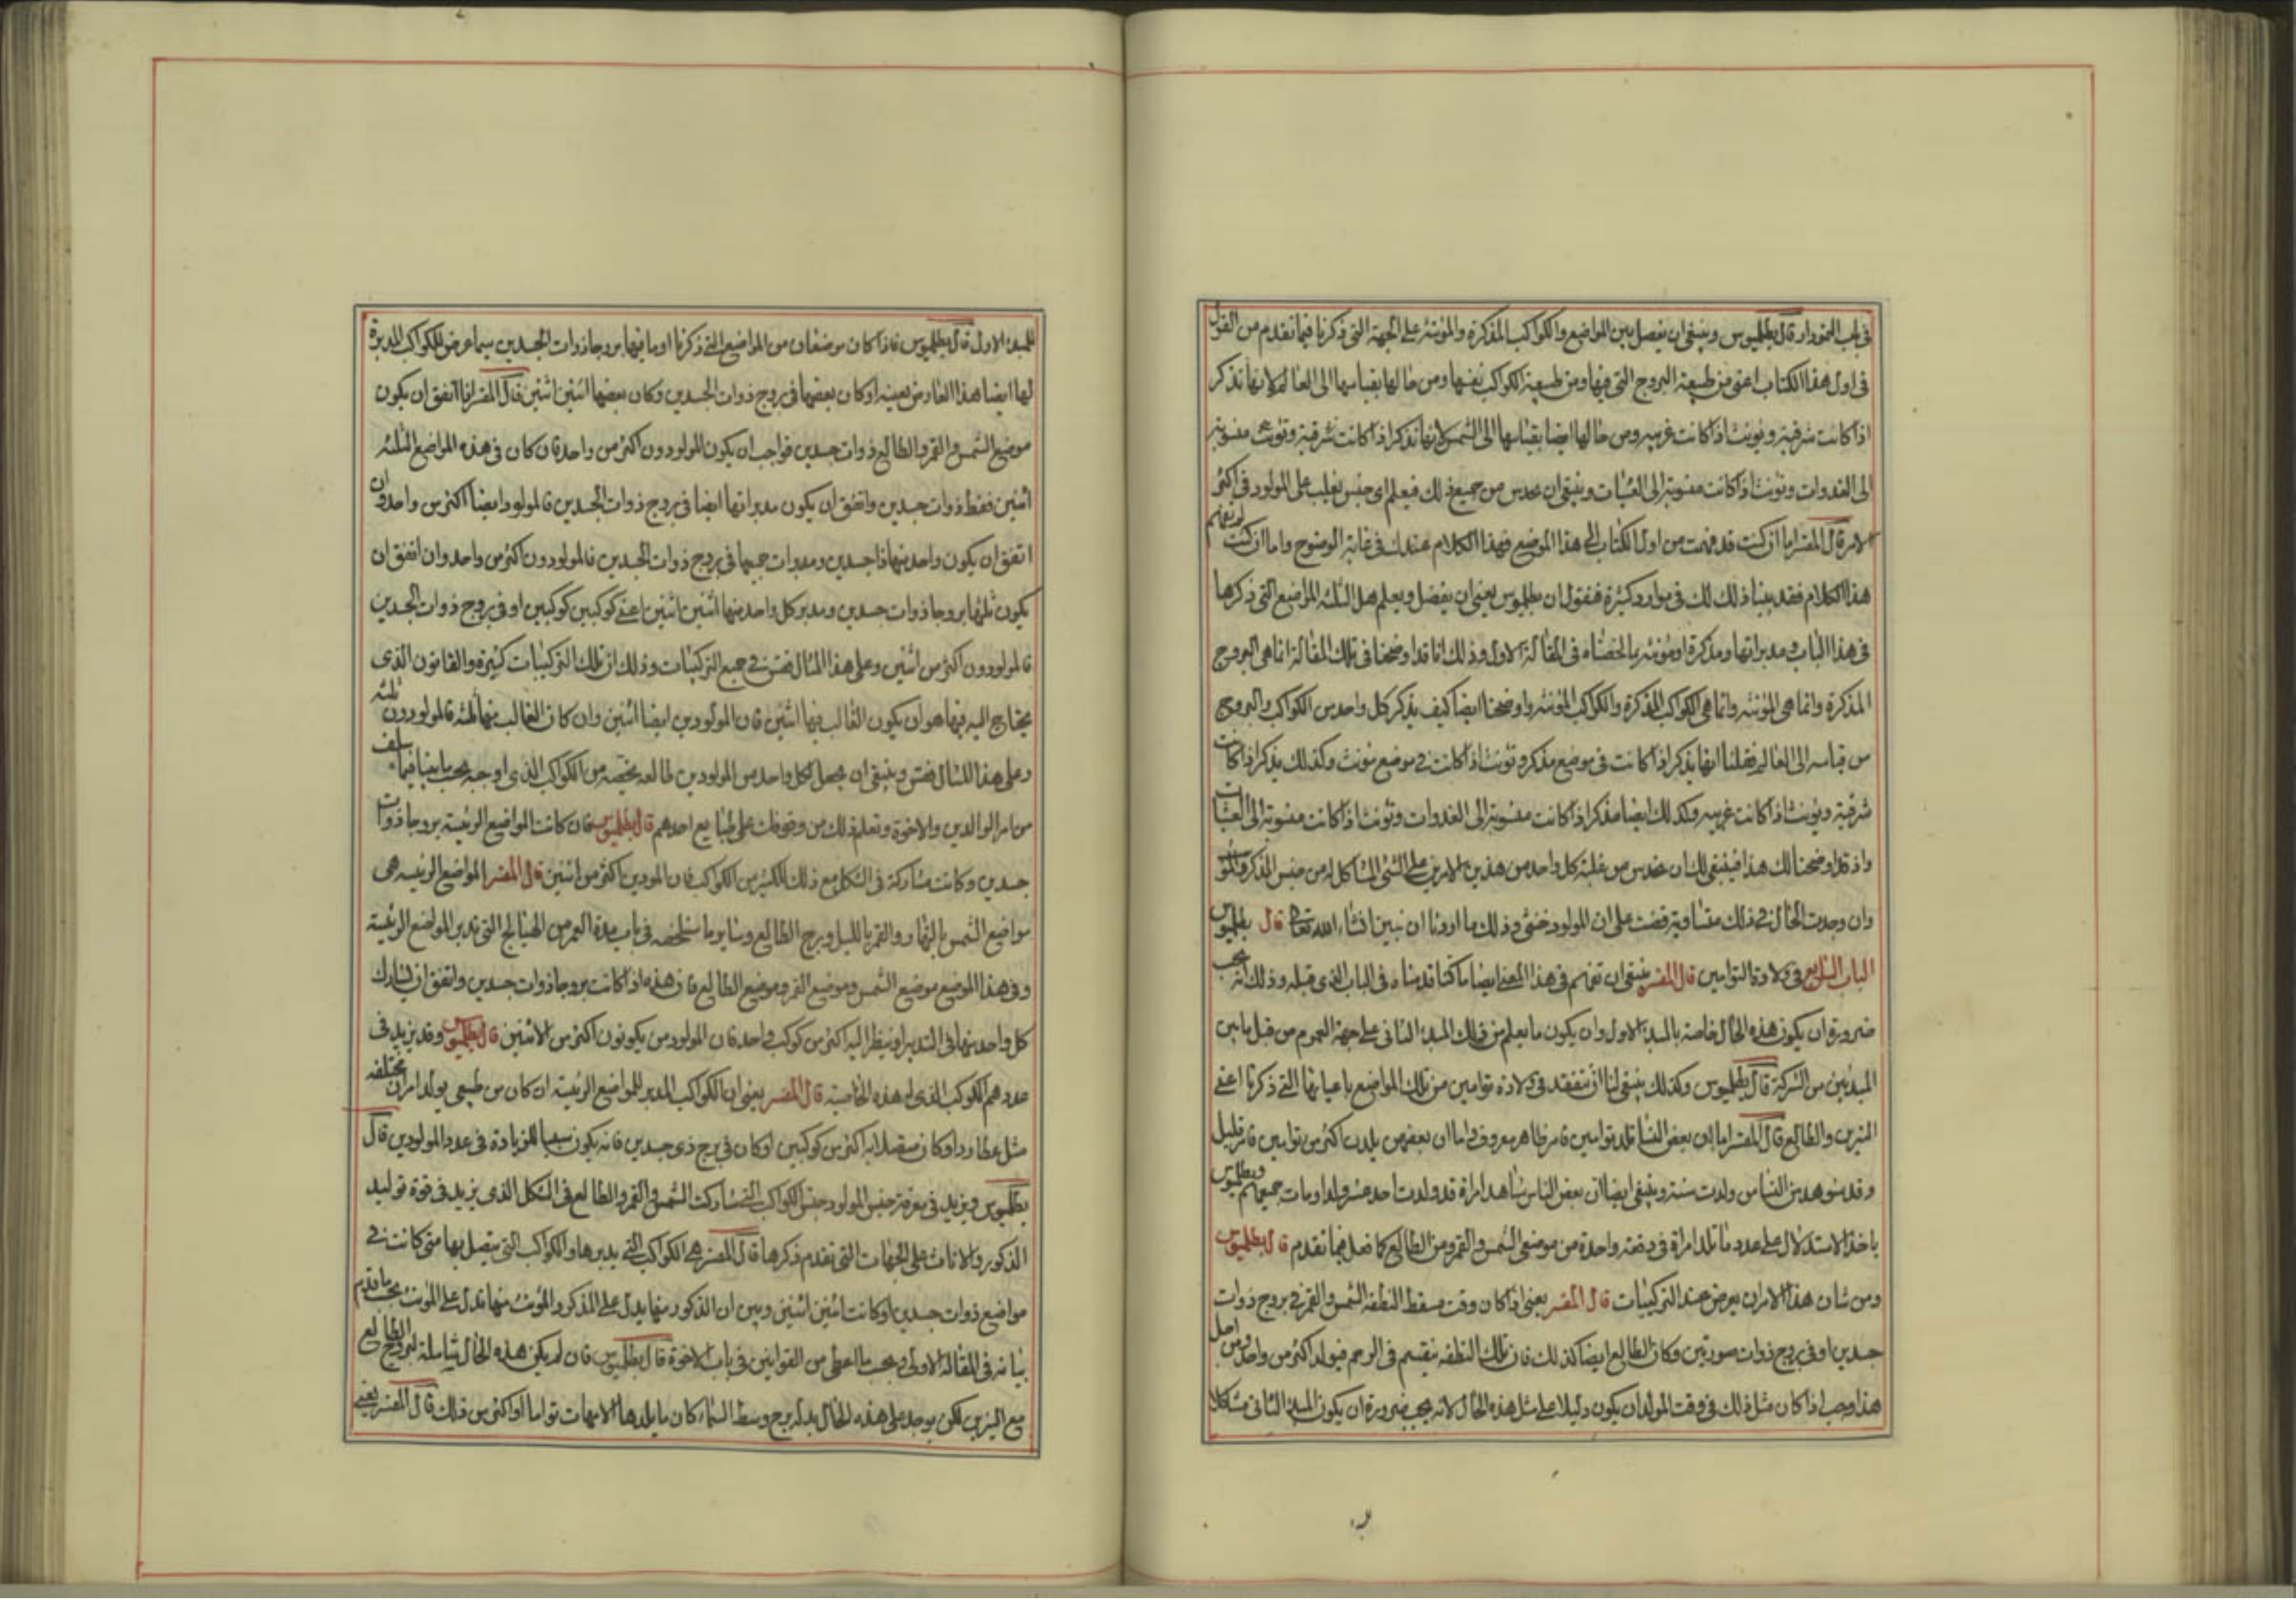 في باب النمودار قال بطلميوس وينبغي ان يفصل بين المواضع والكواكب المذكرة والمؤنثة على الجهة التي ذكرنا فيما تقدم من القول
في اول هذا الكتاب اعني من طبيعة البروج التي فيها ومن طبيعة الكواكب نفسها ومن حالها بقياسها الى العالم لانها تذكر
اذا كانت شرقية وتونث اذا كانت غربية ومن حالها ايضا بقياسها الى الشمس لانها تذكر اذا كانت شرقية وتونث منسوبة
الى الغدوات وتونث اذا كانت منسوبة الى العشيات وينبغي ان يحدس من جميع ذلك فيعلم اي جنس يغلب على المولود في اكثر
الامر قال المفسر اما ان كنت قد فهمت من اول الكتاب الى هذا الموضع فهذا الكلام عندك في غاية الوضوح واما ان كنت لم تفهم
هذا الكلام فقد بينا ذلك لك في موارد كثيرة فنقول ان بطلميوس يعني ان يفصل ويعلم هل الثلثة المواضع التي ذكرها
في هذا الباب ومدبراتها ومذكرة او مؤنثة بما لخصناه في المقالة الاولى وذلك انا قد اوضحنا في تلك المقالة انما هي البروج
المذكرة وانما هي المؤنثة وانما هي الكواكب المذكرة والكواكب المؤنثة واوضحنا ايضا كيف يذكر كل واحد من الكواكب والبروج
من قياسه الى العالم فقلنا انها يذكر اذا كانت في موضع مذكر وتونث اذا كانت في موضع مونث وكذلك يذكر اذا كانت
شرقية ويونث اذا كانت غربية وكذلك ايضا مذكر اذا كانت منسوبة الى الغدوات وتؤنث اذا كانت منسوبة الى العشيات
واذ قد اوضحنا لك هذا فينبغي لك ان تحدس من غلبة كل واحد من هذين الامرين على الشئ المشاكل له من جنس الذكر
وان وجدت الحال في ذلك متساوية قضيت على ان المولود خنثى وذلك ما اردنا ان نبين انشاء الله تعالى قال بطلميوس
الباب السابع في ولادة التوامين قال المفسر ينبغي ان تفهم في هذا المعنى ايضا ما كنا قدمناه في الباب الذي قبله وذلك انه يجب
ضرورة ان يكون هذه الحال خاصة بالمبدء الاول وان يكون ما يعلم من ذلك المبدء الثاني على جهة العموم من قبل ما بين
المبدئين من الشركة قال بطلميوس وكذلك ينبغي لنا ان نتفقد في ولادة توامين من تلك المواضع باعيانها التي ذكرنا اعني
النيرين والطالع قال المفسر اما ان بعض النساء تلد توامين فامر ظاهر معروف واما ان بعضهن يلدن اكثر من توامين فامر قليل
وقد شوهد من النساس ولدت ستة وينبغي ايضا ان بعض الناس شاهد امراة قد ولدت احد عشر ولدا ومات جميعهم وبطلميوس
ياخذ الاستدلال على عدد ما تلد امراة في دفعة واحدة من موضعي الشمس والقمر ومن الطالع كما فعل فيما تقدم قال بطلميوس
ومن شان هذا الامر ان يعرض عند التركيبات قال المفسر يعني اذا كان وقت مسقط النطفة الشمس والقمر في بروج ذوات
جسدين او في بروج ذوات صورتين وكان الطالع ايضا كذلك فان تلك النطفة تنقسم في الرحم فيولد اكثر من واحد ومن اجل
هذا وجب اذا كان مثل ذلك في وقت المولد ان يكون دليلا على مثل هذه الحال لانه يجب ضرورة ان يكون المبدء الثاني مشاكلا
للمبدء الاول قال بطلميوس فاذا كان موضعان من المواضع التي ذكرنا او ما فيها بروجا ذوات الجسدين سيما عرض للكواكب المدبرة
لها ايضا هذا العارض بعينه او كان بعضها في بروج ذوات الجسدين وكان بعضها اثنين اثنين قال المفسر اذا اتفق ان يكون
موضع الشمس والقمر والطالع ذوات جسدين فواجب ان يكون المولودون اكثر من واحد فان كان في هذه المواضع الثلثة
اثنين فقط ذوات جسدين واتفق ان يكون مدبراتها ايضا في بروج ذوات الجسدين فالمولود ايضا اكثر من واحد وان
اتفق ان يكون واحد منها ذا جسدين ومدبرات جميعها في بروج ذوات الجسدين فالمولودون اكثر من واحد وان اتفق ان
يكون ثلثها بروجا ذوات جسدين ومدبر كل واحد منها اثنين اثنين اعني كوكبين كوكبين او في بروج ذوات الجسدين
فالمولودون اكثر من اثنين وعلى هذا المثال فقس في جميع التركيبات وذلك ان تلك التركيبات كثيرة والقانون الذي
يحتاج اليه فيها هو ان يكون الغالب فيها اثنين فان المولودين ايضا اثنين وان كان الغالب منها ثلثة فالمولودون ثلثة
وعلى هذا المثال فقس وينبغي ان يجعل لكل واحد من المولودين طالعه يخصه من الكواكب الذي اوجبه بحسب ما بينا فيما سلف
من امر الوالدين والاخوة وتعلم ذلك من وقوفك على طبايع احدهم قال بطلميوس فان كانت المواضع الرئيسة بروجا ذوات
جسدين وكانت مشاركة في الشكل مع ذلك للكثير من الكواكب فان المودين باكثر من اثنين قال المفسر المواضع الرئيسة هي
مواضع الشمس بالنهار والقمر بالليل وبرج الطالع وساير ما سنلخصه في باب مدة العمر من الهيالج التي تدبر المواضع الرئيسة
وفي هذا الموضع موضع الشمس وموضع القمر وموضع الطالع فان هذه اذا كانت بروجا ذوات جسدين واتفق ان يشارك
كل واحد منها في التدبير او ينظر اليه اكثر من كوكب واحد فان المولودين يكونون اكثر من الاثنين قال بطلميوس وقد يزيد في
عددهم الكوكب الذي له هذه الخاصية قال المفسر يعني ان الكواكب المدبر للمواضع الرئيسة ان كان من طبيعي يولد امران مختلفه
مثل عطارد او كان متصلا به اكثر من كوكبين او كان في برج ذي جسدين فانه يكون سببا للزيادة في عدد المولودين قال
بطلميوس ويزيد في معرفة جنس المولود جنس الكواكب التي شاركت الشمس والقمر والطالع في الشكل الذي يزيد في قوة توليد
الذكور والاناث على الجهات التي تقدم ذكرها قال المفسر هي الكواكب التي يدبرها والكواكب التي يتصل بها متى كانت في
مواضع ذوات جسدين او كانت اثنين اثنين وبين ان الذكور منها يدل على المذكر والمؤنث منها تدل على المؤنث بحسب ما قدم
بيانه في المقالة الاولى وبحسب ما اعطى من القوانين في باب الاخوة قال بطلميوس فان لم يكن هذه الحال شاملة لبروج الطالع
مع النيرين لكن يوجد على هذه الحال بدله برج وسط السماء كان ما يلدها الامهات تواما او اكثر من ذلك قال المفسر يعني